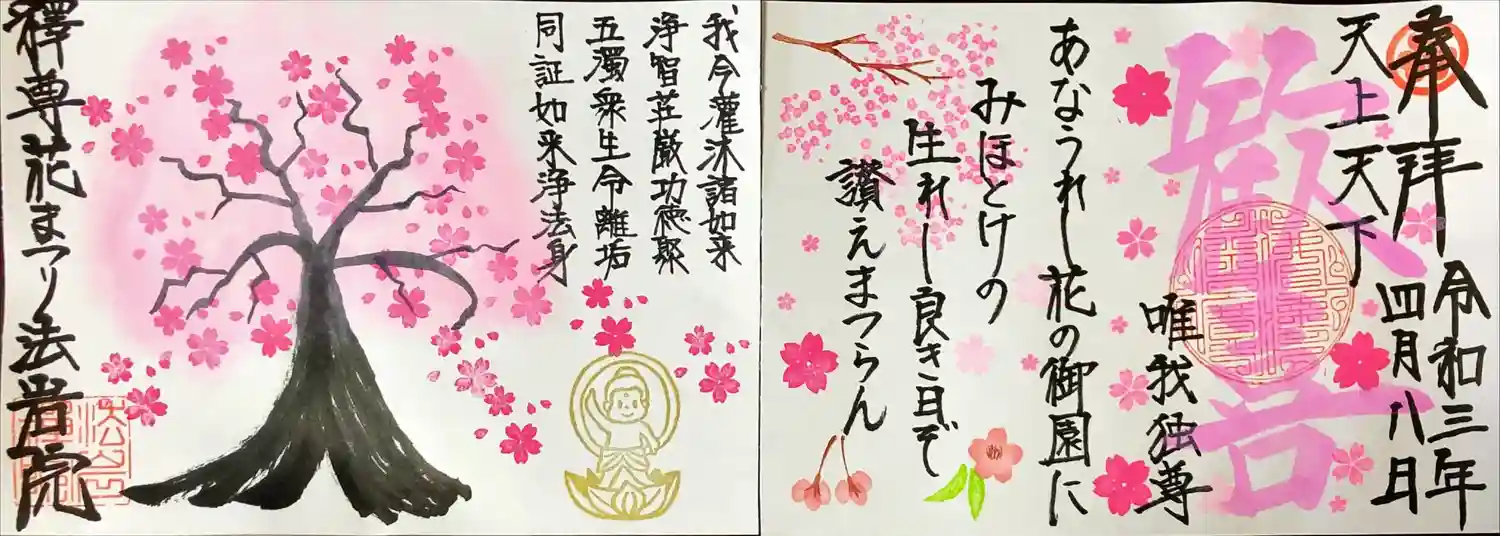 奉拝
令和三年
四月八日
天上天下
唯我独尊
歓喜
あなうれし花の御園に
みほとけの
生れし良き日ぞ
讃えまつらん
我今灌沐諸如来
浄智荘厳功徳聚
五濁衆生令離垢
同証如来浄法身
釋尊花まつり法岩院